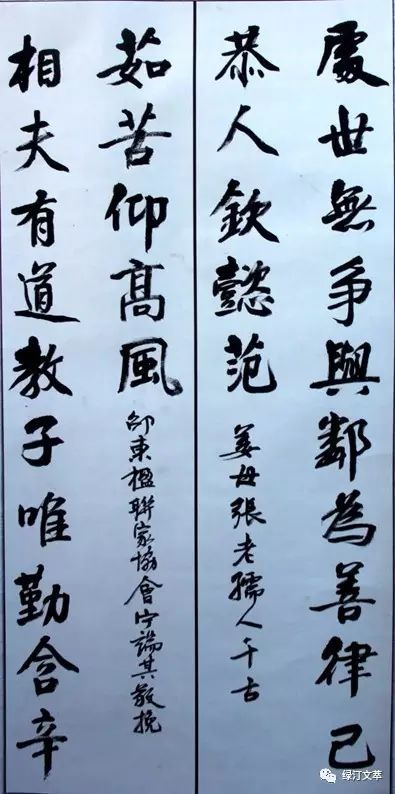 處世無争與鄰為善律己
恭人欽懿范
姜母張老孺人千古
相夫有道教子唯勤含辛
茹苦仰髙風
邵東楹聯家協會宁端其敬挽
绿汀文萃